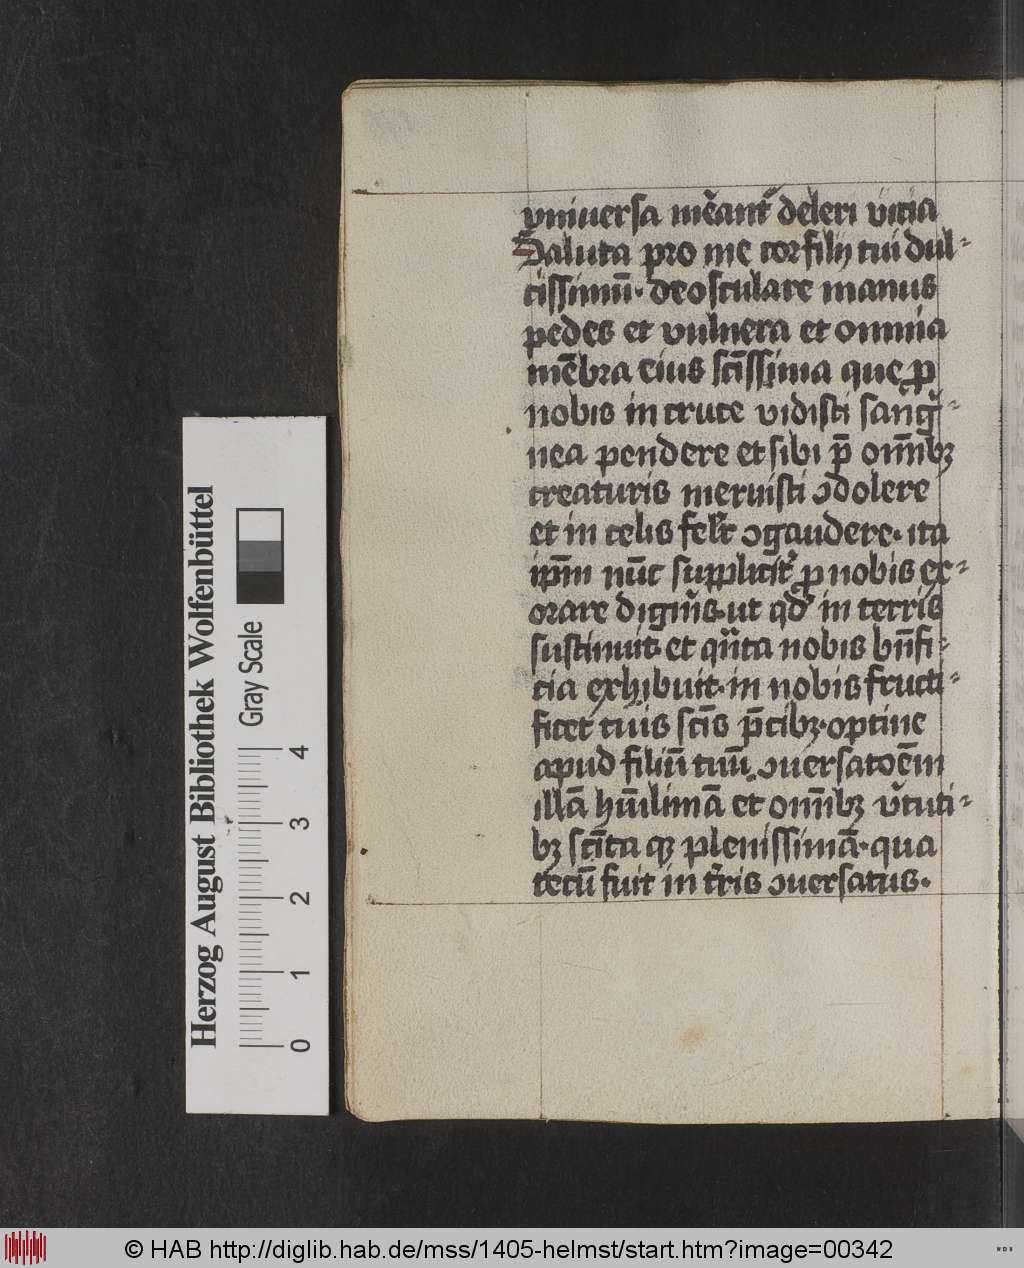 vniuersa mēant᷑ deleri vitia
Saluta pro me cor filij tui dul-
cissimū. deosculare manus
pedes et vulnera et omnia
mēbra eius sc̄issima que ꝓ
nobis in cruce vidisti sang̃-
nea pendere et sibi p̄ om̄ibꝫ
creaturis meruisti ꝯdolere
et in celis fel̕r ꝯgaudere. ita
ip̄m nūc supplicit᷑ ꝓ nobis ex-
orare digņis. ut qd̕ in terris
sustinuit. et qn̄ta nobis bn̄fi-
cia exhibuit. in nobis fructi-
ficet tuis sc̄is p̄cibꝫ. optine
apud filiū tuū ꝯuersatoēm
illā hūilimā et om̄ibꝫ v̕tuti-
bꝫ sc̄ita qꝫ plenissimā. qua
tecū fuit in t̕ris ꝯuersatus.
Herzog August Bibliothek Wolfenbüttel
Gray Scale
0 1 2 3 4
© HAB http://diglib.hab.de/mss/1405-helmst/start.htm?image=00342